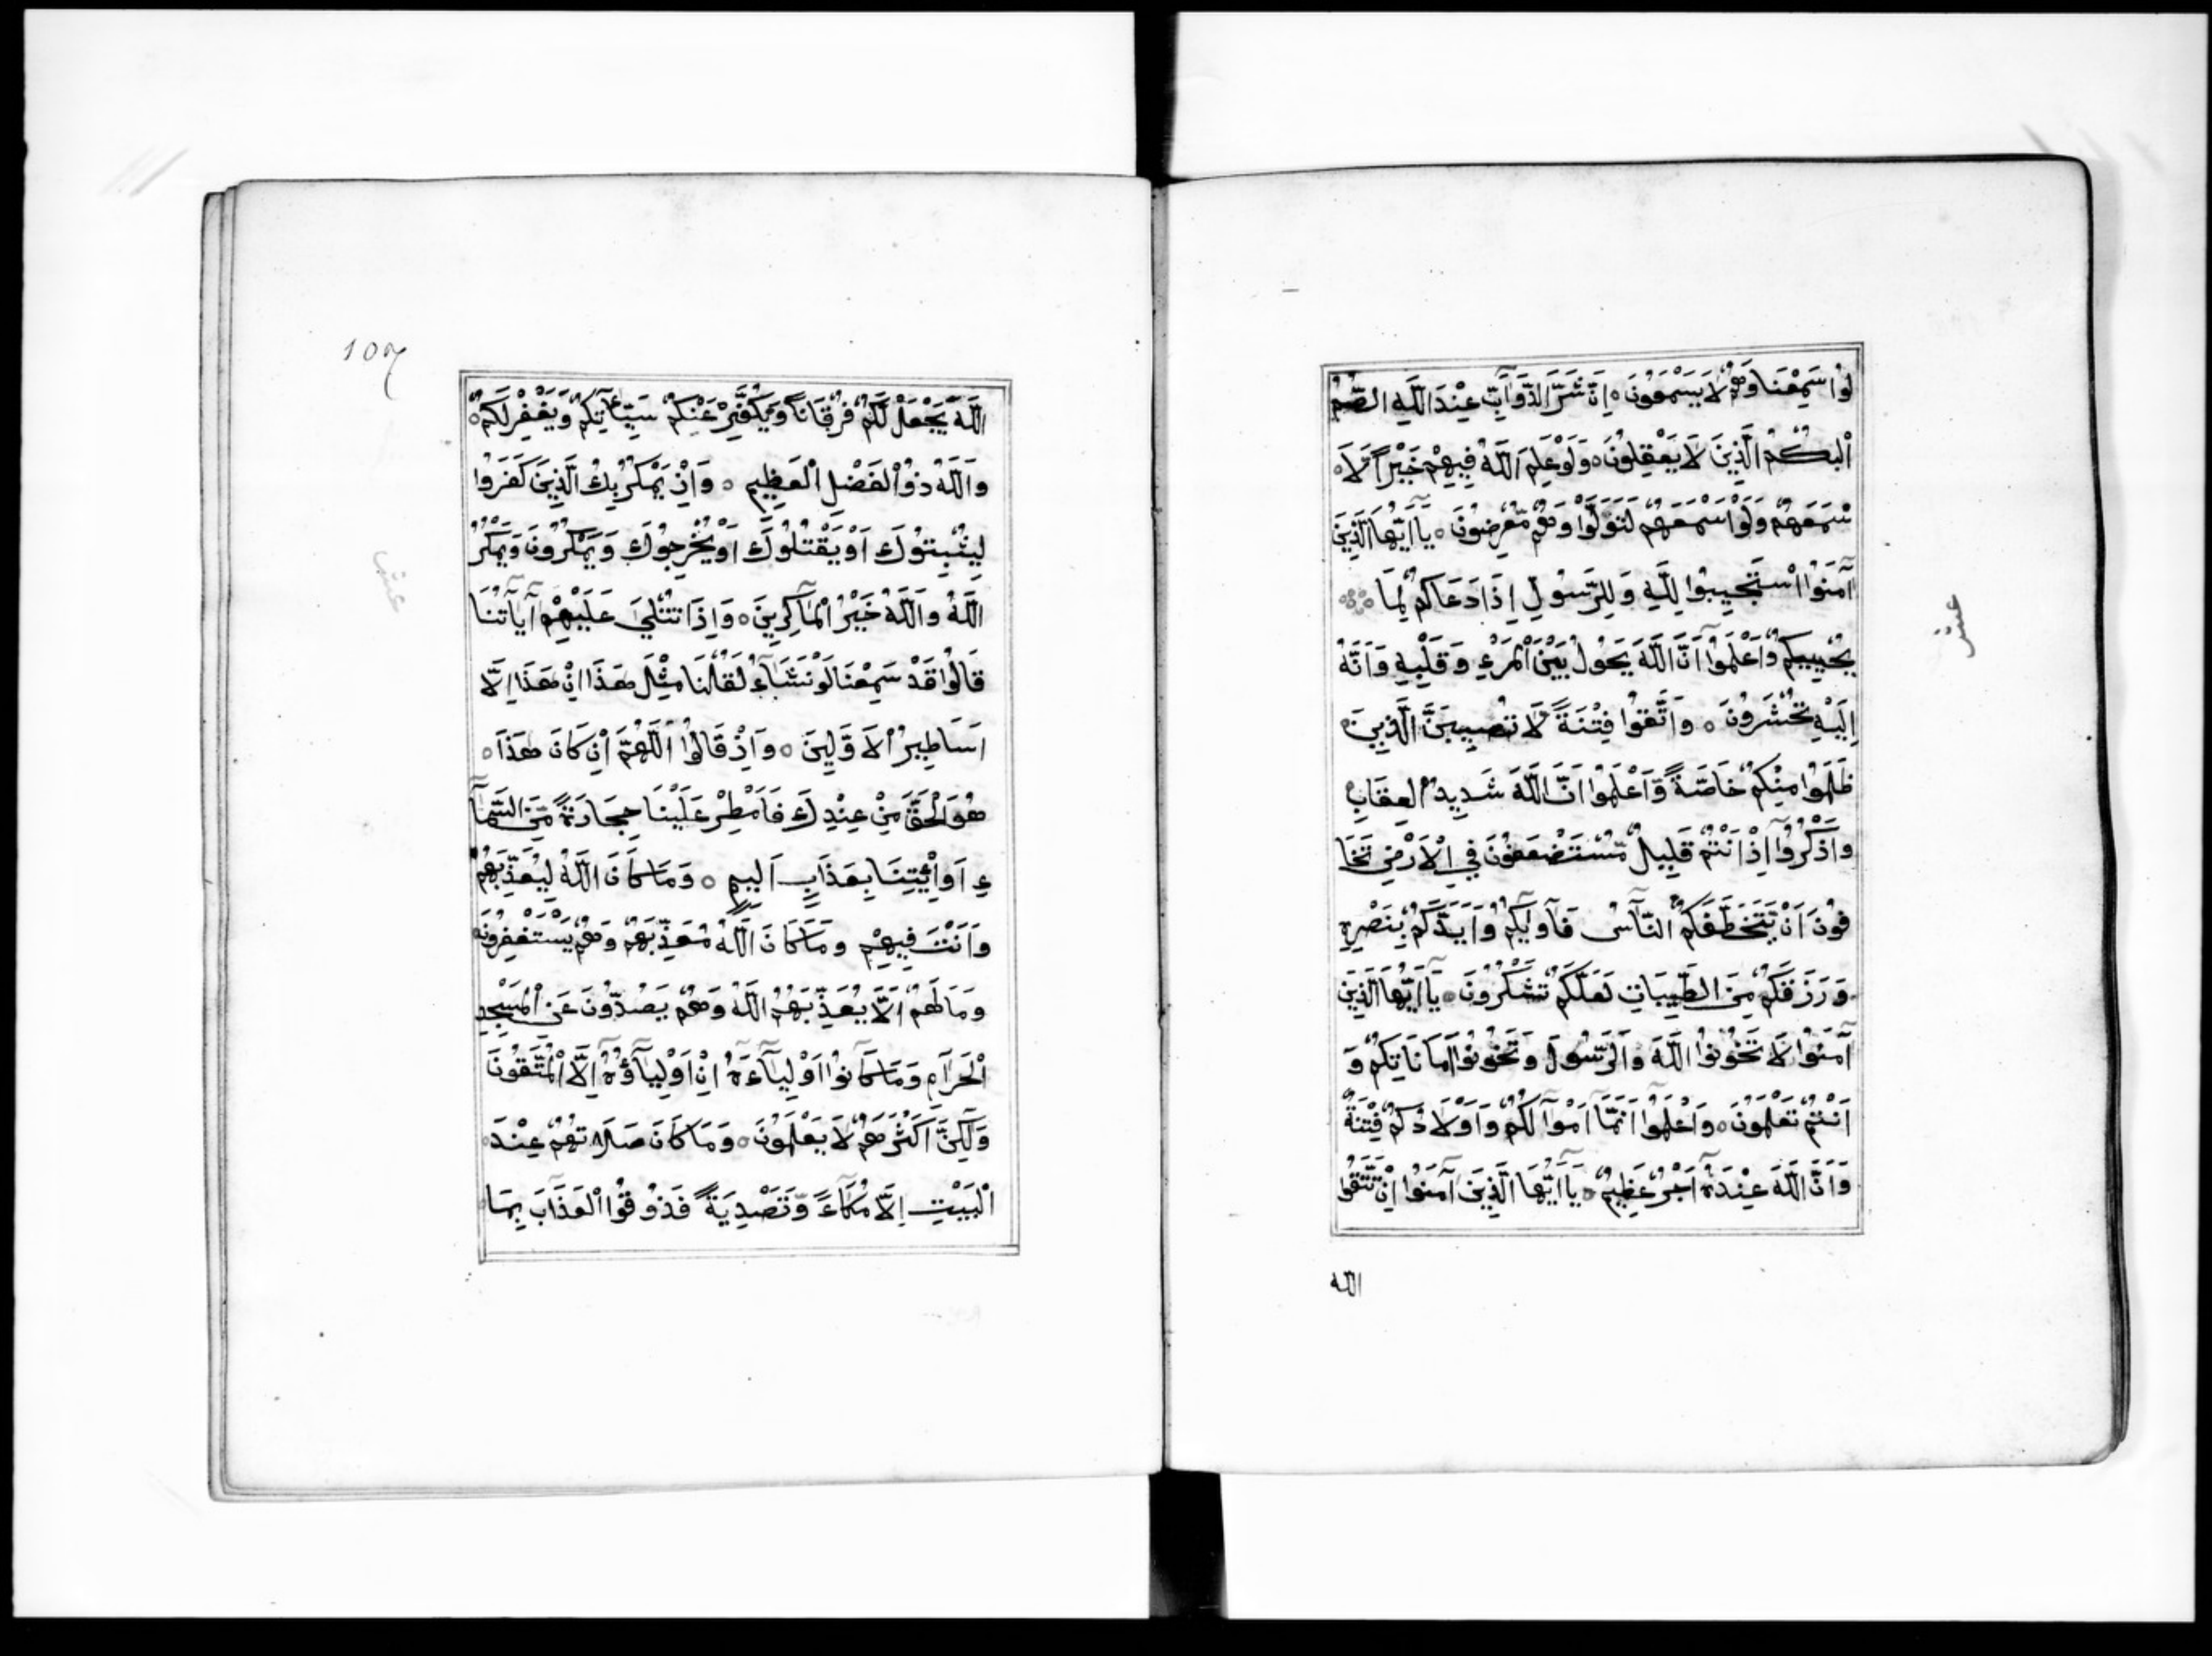 لُوا سَمِعْنَا وَهُمْ لَا يَسْمَعُونَ ۝ اِنَّ شَرَّ الدَّوَآبِّ عِنْدَ اللَّهِ الصُّمُّ
الْبُكْمُ الَّذِينَ لَا يَعْقِلُونَ ۝ وَلَوْ عَلِمَ اللَّهُ فِيهِمْ خَيْرًا لَا
سْمَعَهُمْ وَلَوْ اَسْمَعَهُمْ لَتَوَلَّوْا وَهُمْ مُّعْرِضُونَ ۝ يَآ اَيُّهَا الَّذِينَ
آمَنُوا اسْتَجِيبُوا لِلَّهِ وَلِلرَّسُولِ اِذَا دَعَاكُمْ لِمَا
يُحْيِيكُمْ وَاَعْلَمُوآ اَنَّ اللَّهَ يَحُولُ بَيْنَ الْمَرْءِ وَقَلْبِهِ وَاَنَّهُ
اِلَيْهِ تُحْشَرُونَ ۝ وَاتَّقُوا فِتْنَةً لَّا تُصِيبَنَّ الَّذِينَ
ظَلَمُوا مِنْكُمْ خَاصَّةً وَّاَعْلَمُوا اَنَّ اللَّهَ شَدِيدُ الْعِقَابِ
وَاذْكُرُوآ اِذْ اَنْتُمْ قَلِيلٌ مُّسْتَضْعَفُونَ فِي الْاَرْضِ تَخَا
فُونَ اَنْ يَّتَخَطَّفَكُمُ النَّاسُ فَآوٰيكُمْ وَاَيَّدَكُمْ بِنَصْرِهِ
وَرَزَقَكُمْ مِنَ الطَّيِّبَاتِ لَعَلَّكُمْ تَشْكُرُونَ ۝ يَآ اَيُّهَا الَّذِينَ
آمَنُوا لَا تَخُونُوا اللَّهَ وَالرَّسُولَ وَتَخُونُوآ اَمَانَاتِكُمْ وَ
اَنْتُمْ تَعْلَمُونَ ۝ وَاعْلَمُوآ اَنَّمَآ اَمْوَالُكُمْ وَاَوْلَادُكُمْ فِتْنَةٌ
وَاَنَّ اللَّهَ عِنْدَهُ اَجْرٌ عَظِيمٌ ۝ يَآ اَيُّهَا الَّذِينَ آمَنُوا اِنْ تَتَّقُوا
الله
عشر
107
اللَّهَ يَجْعَلْ لَّكُمْ فُرْقَانًا وَّيُكَفِّرْ عَنْكُمْ سَيِّئَاتِكُمْ وَيَغْفِرْ لَكُمْ ۝
وَاللَّهُ ذُو الْفَضْلِ الْعَظِيمِ ۝ وَاِذْ يَمْكُرُ بِكَ الَّذِينَ كَفَرُوا
لِيُثْبِتُوكَ اَوْ يَقْتُلُوكَ اَوْ يُخْرِجُوكَ وَيَمْكُرُونَ وَيَمْكُرُ
اللَّهُ وَاللَّهُ خَيْرُ الْمَاكِرِينَ ۝ وَاِذَا تُتْلَىٰ عَلَيْهِمْ آيَاتُنَا
قَالُوا قَدْ سَمِعْنَا لَوْ نَشَآءُ لَقُلْنَا مِثْلَ هَذَا اِنْ هَذَا اِلَّا
اَسَاطِيرُ الْاَوَّلِينَ ۝ وَاِذْ قَالُوا اللَّهُمَّ اِنْ كَانَ هَذَا ۝
هُوَ الْحَقَّ مِنْ عِنْدِكَ فَاَمْطِرْ عَلَيْنَا حِجَارَةً مِّنَ السَّمَآ
ءِ اَوِ ائْتِنَا بِعَذَابٍ اَلِيمٍ ۝ وَمَا كَانَ اللَّهُ لِيُعَذِّبَهُمْ
وَاَنْتَ فِيهِمْ وَمَا كَانَ اللَّهُ مُعَذِّبَهُمْ وَهُمْ يَسْتَغْفِرُونَ
وَمَا لَهُمْ اَلَّا يُعَذِّبَهُمُ اللَّهُ وَهُمْ يَصُدُّونَ عَنِ الْمَسْجِدِ
الْحَرَامِ وَمَا كَانُوآ اَوْلِيَآءَهُ اِنْ اَوْلِيَآؤُهُ اِلَّا الْمُتَّقُونَ
وَلَكِنَّ اَكْثَرَهُمْ لَا يَعْلَمُونَ ۝ وَمَا كَانَ صَلَاتُهُمْ عِنْدَ
الْبَيْتِ اِلَّا مُكَآءً وَّتَصْدِيَةً فَذُوقُوا الْعَذَابَ بِمَا